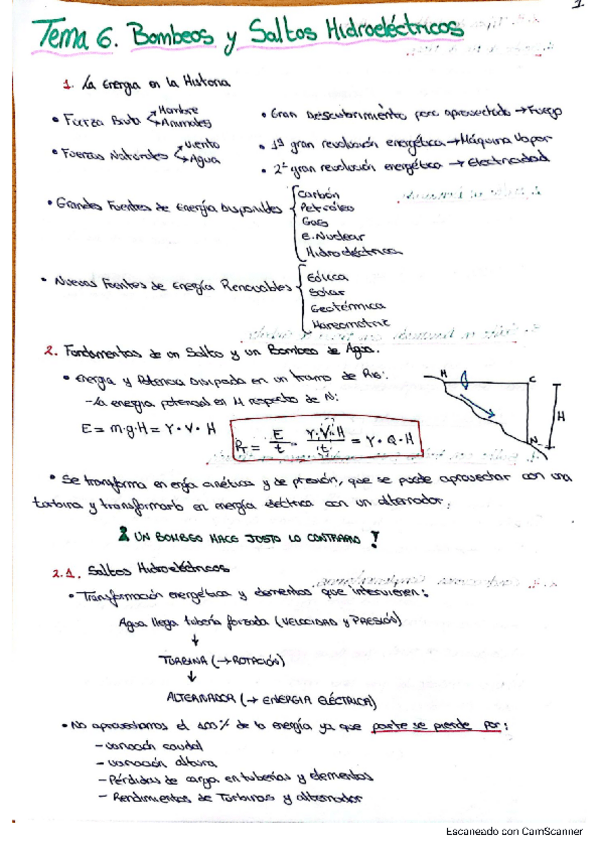 1.
Tema 6. Bombeos y Saltos Hidroeléctricos
1. La Energía en la Historia
• Fuerza Bruta Hombre Animales
• Gran Descubrimiento pero aprovechado → Fuego
• Fuerzas Naturales Viento Agua
• 1ª gran revolución energética → Máquina Vapor
• 2ª gran revolución energética → Electricidad
• Grandes Fuentes de Energía Disponibles
Carbón
Petróleo
Gas
E. Nuclear
Hidroeléctrica
• Nuevas Fuentes de Energía Renovables
Eólica
Solar
Geotérmica
Mareomotriz
2. Fundamentos de un Salto y un Bombeo de Agua.
• Energía y Potencia Disipada en un tramo de Río:
- La energía potencial en M respecto de N:
M C H N
E = m·g·H = γ · V · H
P_T = E/t = γ·V·H/t = γ · Q · H
• Se transforma en enfía cinética y de presión, que se puede aprovechar con una
turbina y transformarlo en energía eléctrica con un alternador.
UN BOMBEO HACE JUSTO LO CONTRARIO !
2.1. Saltos Hidroeléctricos
• Transformación energética y elementos que intervienen:
Agua llega tubería forzada (VELOCIDAD y PRESIÓN)
↓
TURBINA (→ ROTACIÓN)
↓
ALTERNADOR (→ ENERGIA ELÉCTRICA)
• No aprovechamos el 100% de la energía ya que parte se pierde por:
- variación caudal
- variación altura
- Pérdidas de carga en tuberías y elementos
- Rendimientos de Turbinas y alternador
Escaneado con CamScanner